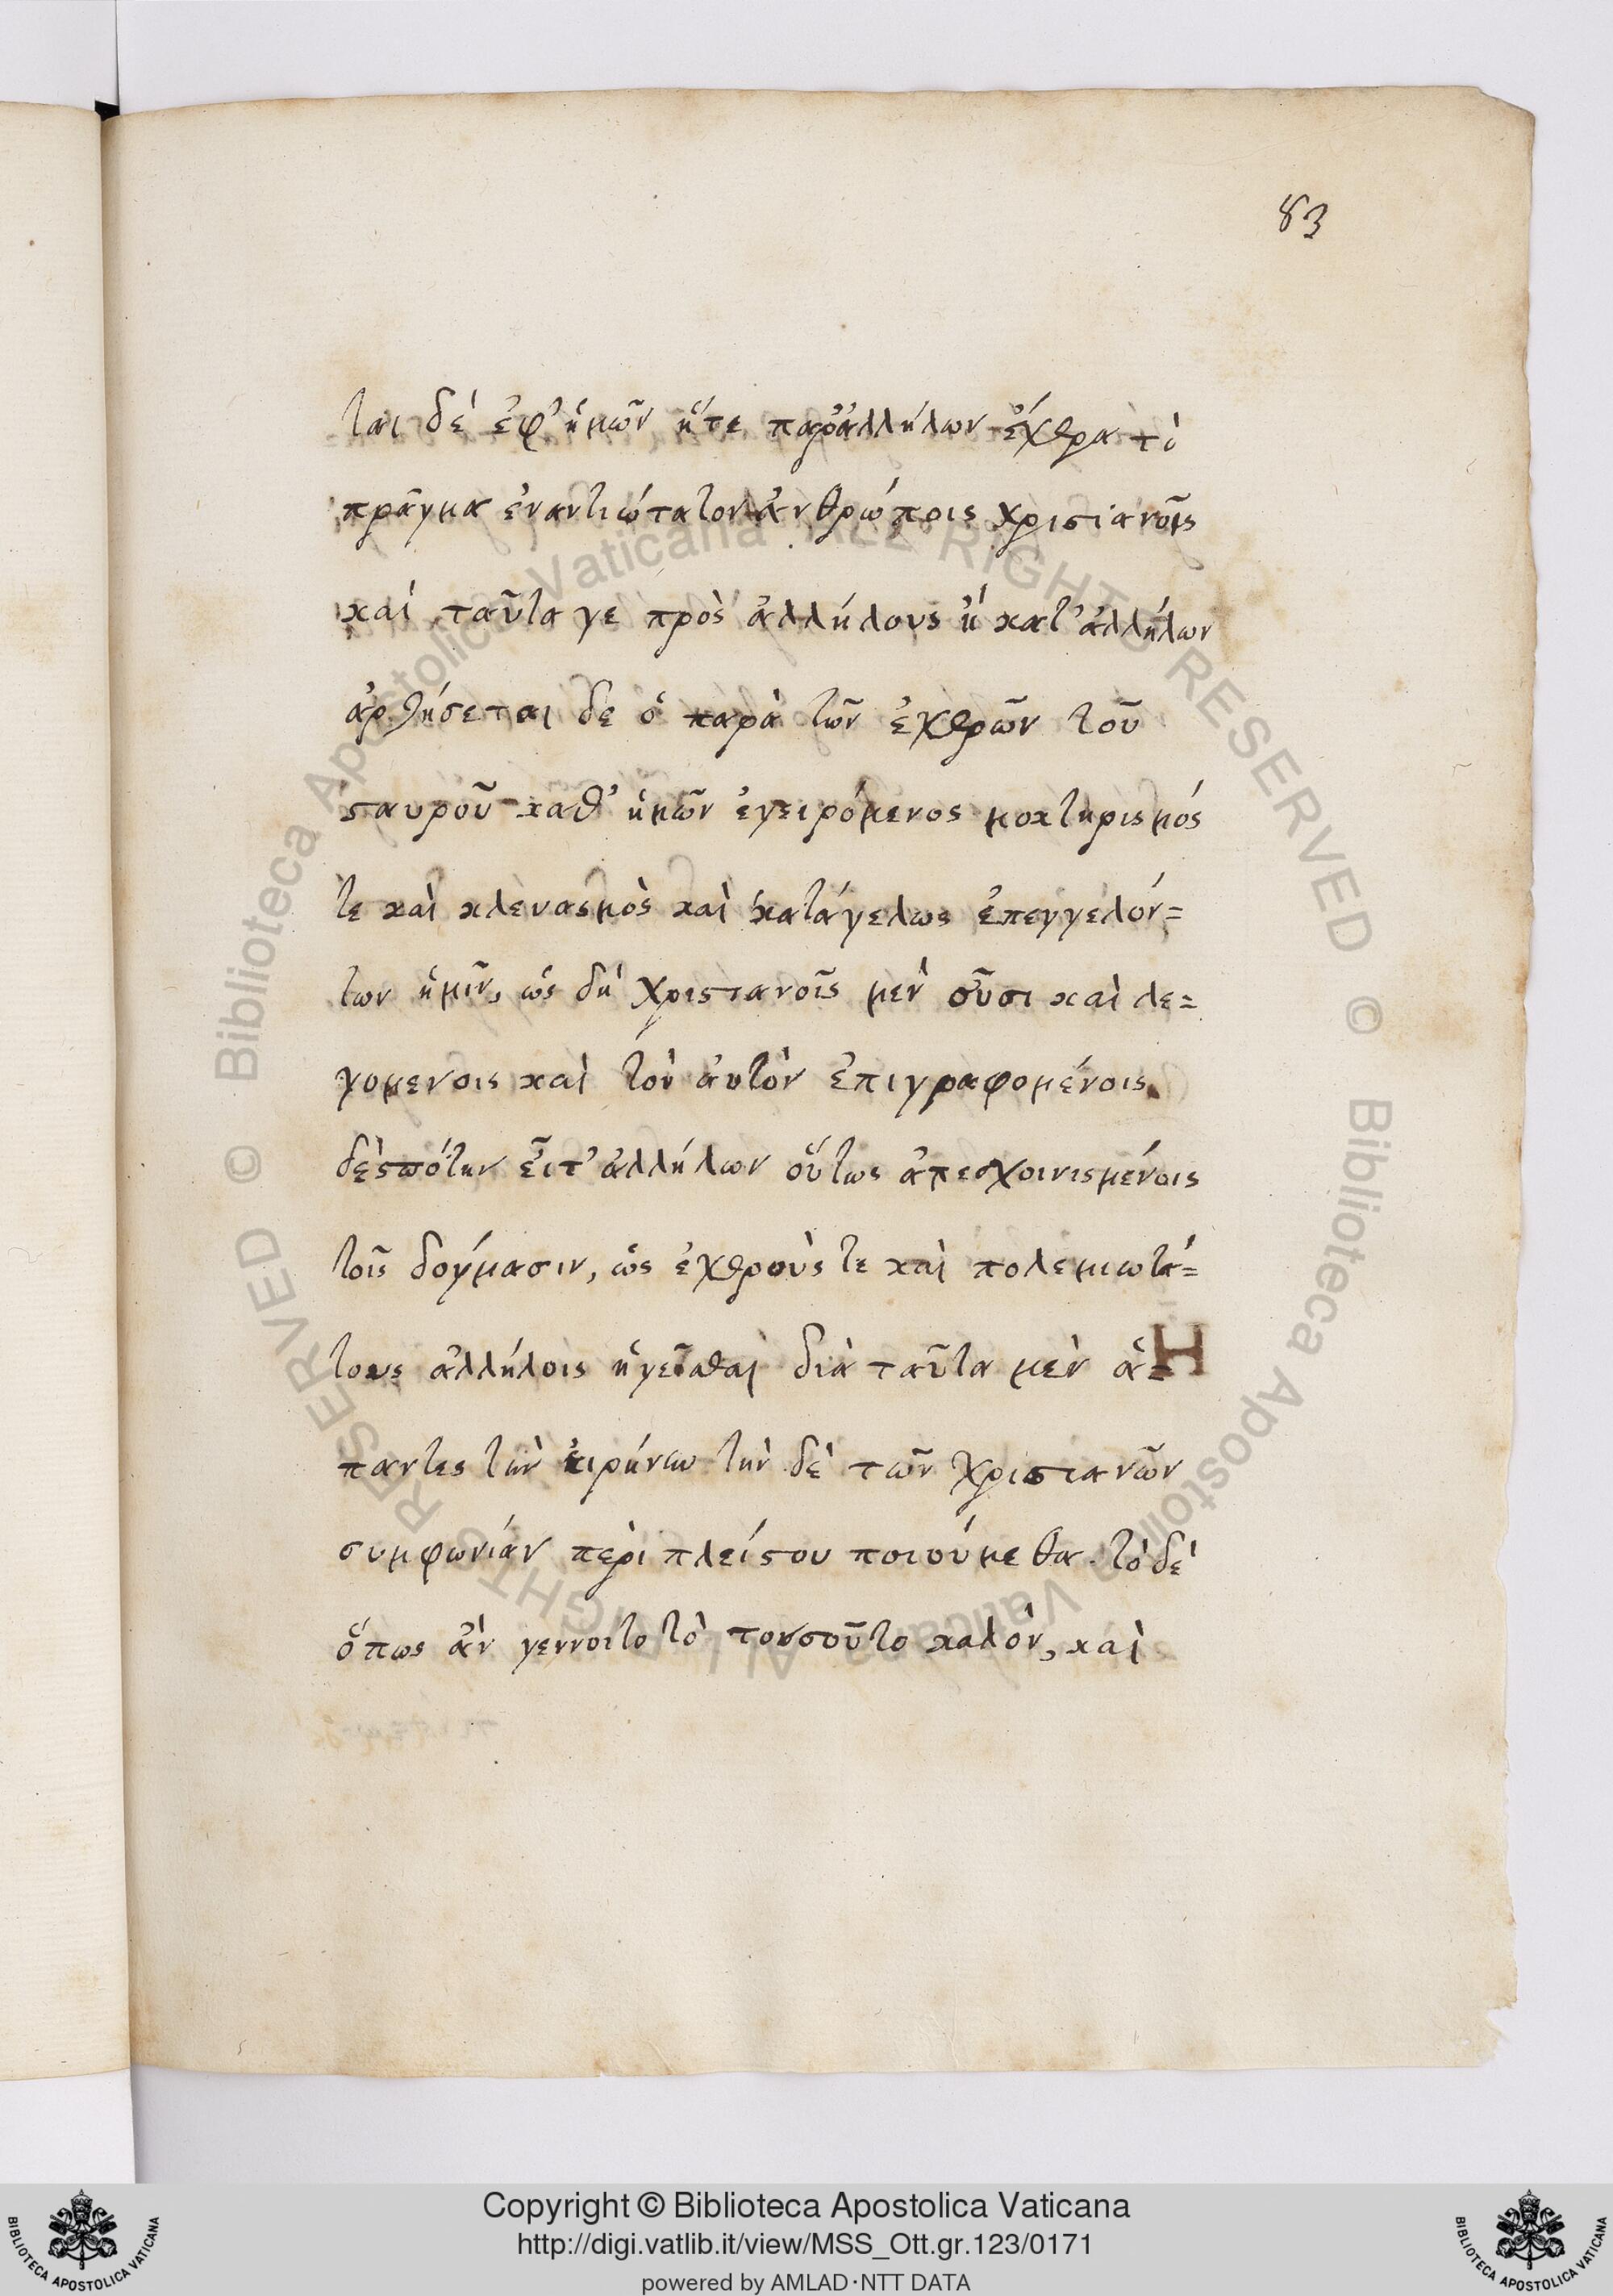 83
ται δὲ ἐφ' ἡμῶν ἥτε παρ' ἀλλήλων ἔχθρα τὸ
πρᾶγμα ἐναντιώτατον ἀνθρώποις χριστιανοῖς
καὶ ταῦτα γε πρὸς ἀλλήλους ἢ κατ' ἀλλήλων
ἀρθήσεται δε ὁ παρὰ τῶν ἐχθρῶν τοῦ
σταυροῦ καθ' ἡμῶν ἐγειρόμενος μοκτηρισμός
τε καὶ χλευασμὸς καὶ κατάγελως ἐπεγγελόν=
των ἡμῖν, ὡς δὴ χριστιανοῖς μὲν οὖσι καὶ λε=
γομενοις καὶ τὸν αὐτὸν ἐπιγραφομένοις
δεσπότην εἶτ' ἀλλήλων οὕτως ἀπεσχοινισμένοις
τοῖς δόγμασιν, ὡς ἐχθρούς τε καὶ πολεμιωτά=
τους ἀλλήλοις ἡγεῖσθαι διὰ ταῦτα μὲν ἅ=
H
παντες τὴν εἰρήνην τὴν δὲ τῶν χριστιανῶν
συμφωνίαν περὶ πλείστου ποιούμεθα. τὸ δὲ
ὅπως ἂν γεννοιτο τὸ τοσοῦτο καλὸν, καὶ
Copyright © Biblioteca Apostolica Vaticana
http://digi.vatlib.it/view/MSS_Ott.gr.123/0171
powered by AMLAD·NTT DATA
BIBLIOTECA APOSTOLICA VATICANA
BIBLIOTECA APOSTOLICA VATICANA
© Biblioteca Apostolica Vaticana ALL RIGHTS RESERVED
© Biblioteca Apostolica Vaticana ALL RIGHTS RESERVED